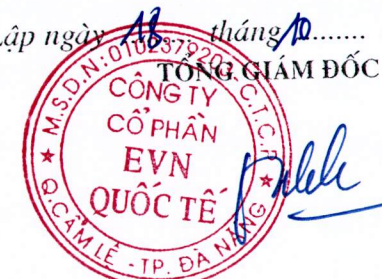 Lập ngày 18 tháng 10........
TỔNG GIÁM ĐỐC
M.S.D.N: C.T.C.P
CÔNG TY
CỔ PHẦN
EVN
QUỐC TẾ
★ Q.CẨM LỆ - TP. ĐÀ NẴNG ★